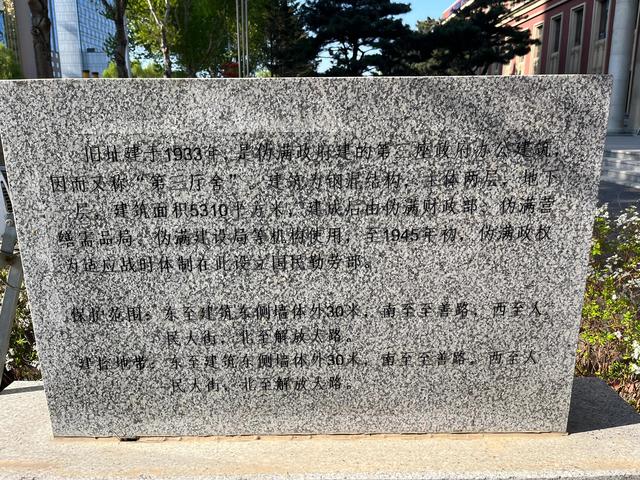 旧址建于1933年，是伪满政府建的第三座政府办公建筑，
因而又称“第三厅舍”。建筑为钢混结构，主体两层，地下
一层，建筑面积5310平方米，建成后由伪满财政部、伪满营
缮需品局、伪满建设局等机构使用，至1945年初，伪满政权
为适应战时体制在此设立国民勤劳部。
保护范围：东至建筑东侧墙体外30米，南至至善路，西至人
民大街，北至解放大路。
建控地带：东至建筑东侧墙体外30米，南至至善路，西至人
民大街，北至解放大路。